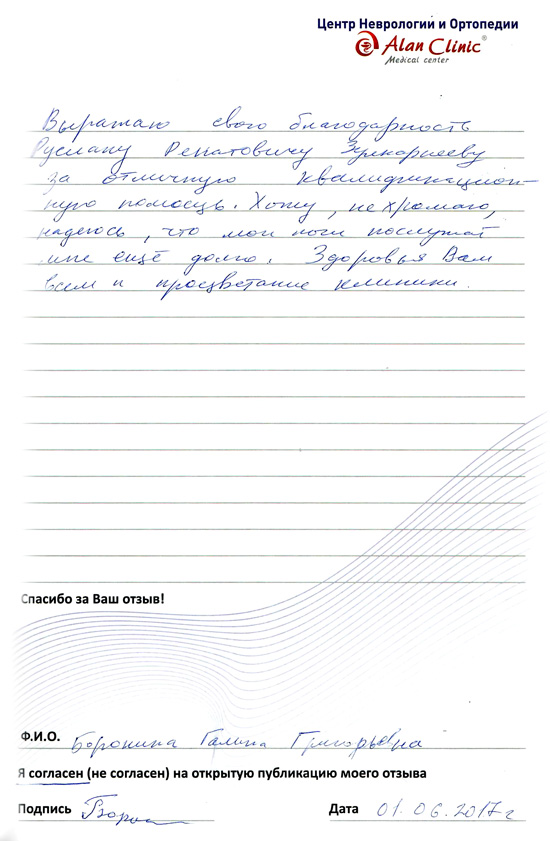 Центр Неврологии и Ортопедии
Alan Clinic®
Medical center
Выражаю свою благодарность
Руслану Ренатовичу Зулкарнееву
за отличную квалификацион-
ную помощь. Хожу, не хромаю,
надеюсь, что мои ноги послужат
мне ещё долго. Здоровья Вам
всем и процветание клиники.
Спасибо за Ваш отзыв!
Ф.И.О. Воронина Галина Григорьевна
Я согласен (не согласен) на открытую публикацию моего отзыва
Подпись Дата 01.06.2017г